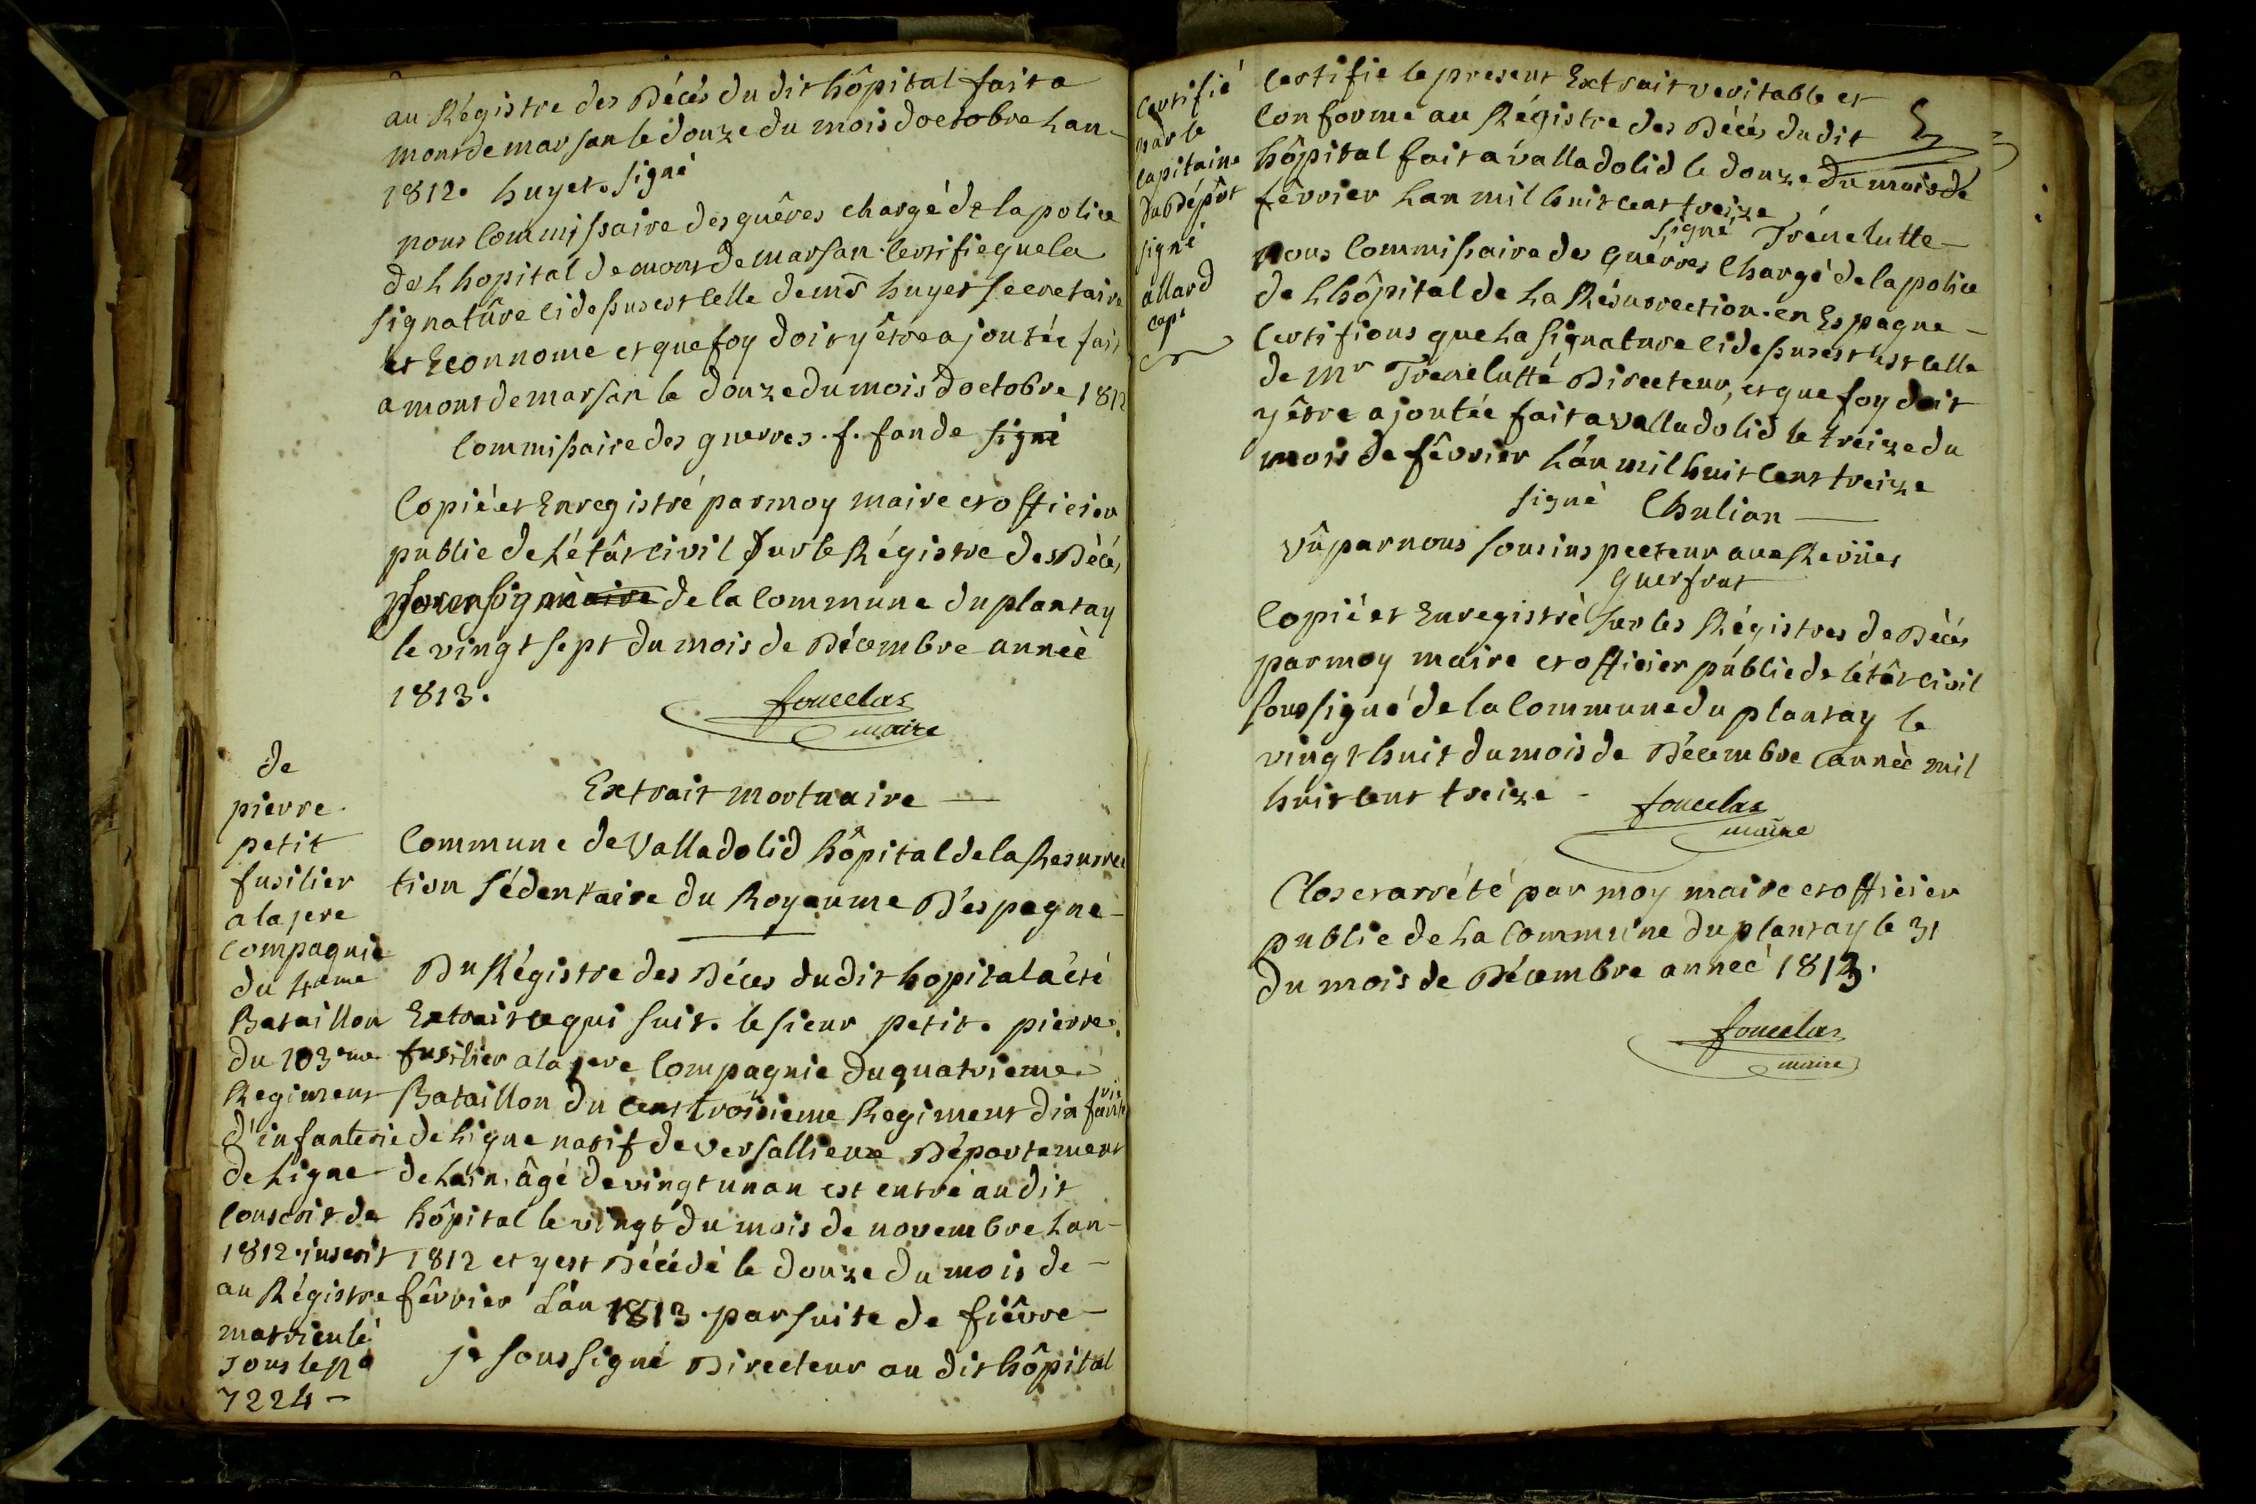 au Régistre des Décés du dit hôpital fait a
mont de marsan le douze du mois doctobre Lan
1812. huyet. signé
nous Commissaire des guêres chargé de la police
de L hopital de mont de marsan Certifie que la
signatûre ci dessus est Celle de mr huyet secretaire
et Econnome et que foy doit y être ajoutée fait
a mont de marsan le douze du mois doctobre 1812
Commissaire des guerres. f. fande signé
Copié et Enregistré par moy maire et officier
public de L'état civil sur le Régistre des Décés
de la Commune du plantay
le vingt sept du mois de Décembre anneè
1813.
foucelas
maire
de
pierre
petit
fusilier
a la jere
Compagnie
du 4eme
Bataillon
du 103eme
Regiment
d'infanterie
de Ligne
Conscrit de
1812. inscrit
au Régistre
matriculé
sous le no
7224 -
Extrait mortuaire
Commune de Valladolid hôpital de la Resurrec
tion sédentaire du Royaume D'espagne
Du Régistre des Déces du dit hopital a été
Extrait ce qui suit. le sieur petit. pierre.
fusilier a la jere Compagnie du quatrieme
Bataillon du Cent troisieme Regiment dinfanterie
de Ligne natif de versallieux Département
de Lain, âgé de vingt un an est entré au dit
hôpital le vingt du mois de novembre Lan
1812 et y est Décédé le douze du mois de
fêvrier Lân 1813. par suite de fiêvre
je sous signé Directeur au dit hôpital
Certifié
par le
Capitaine
du Dépôt
signé
allard
capt
Certifie le present Extrait veritable et
Conforme au Régistre des Décés du dit
hôpital fait à valladolid le douze du mois de
fêvrier Lan mil huit Cent treize
signé Trénelutte
nous Commissaire des guérres Chargé de la police
de L hôpital de La Résurrection. en Espagne
Certifions que La signature ci dessus est est celle
de Mr Trénelutté Directeur, et que foy doit
y être ajoutée fait a valladôlid le treize du
mois de fêvrier Lân mil huit Cent treize
signé Chulian
Vû par nous sous inspecteur aux Revües
querfrut
Copié et Enregistré sur les Régistres de Décés
par moy maire et officier public de létât Civil
sous signé de la Commune du plantay le
vingt huit du mois de Décembre anneè mil
huit Cent treize -
foucelas
maire
Clos et arrété par moy maire et officier
public de La Commune du plantay le 31
du mois de Décembre anneé 1813.
foucelas
maire